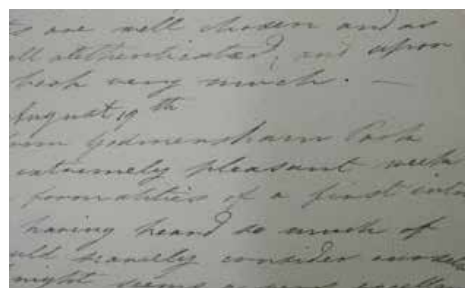 are well chosen and as
all authenticated; and upon
very much. —
August 19th
from Godmersham Park
extremely pleasant week
formalities of a first
having heard so much of
scarcely consider
might seems